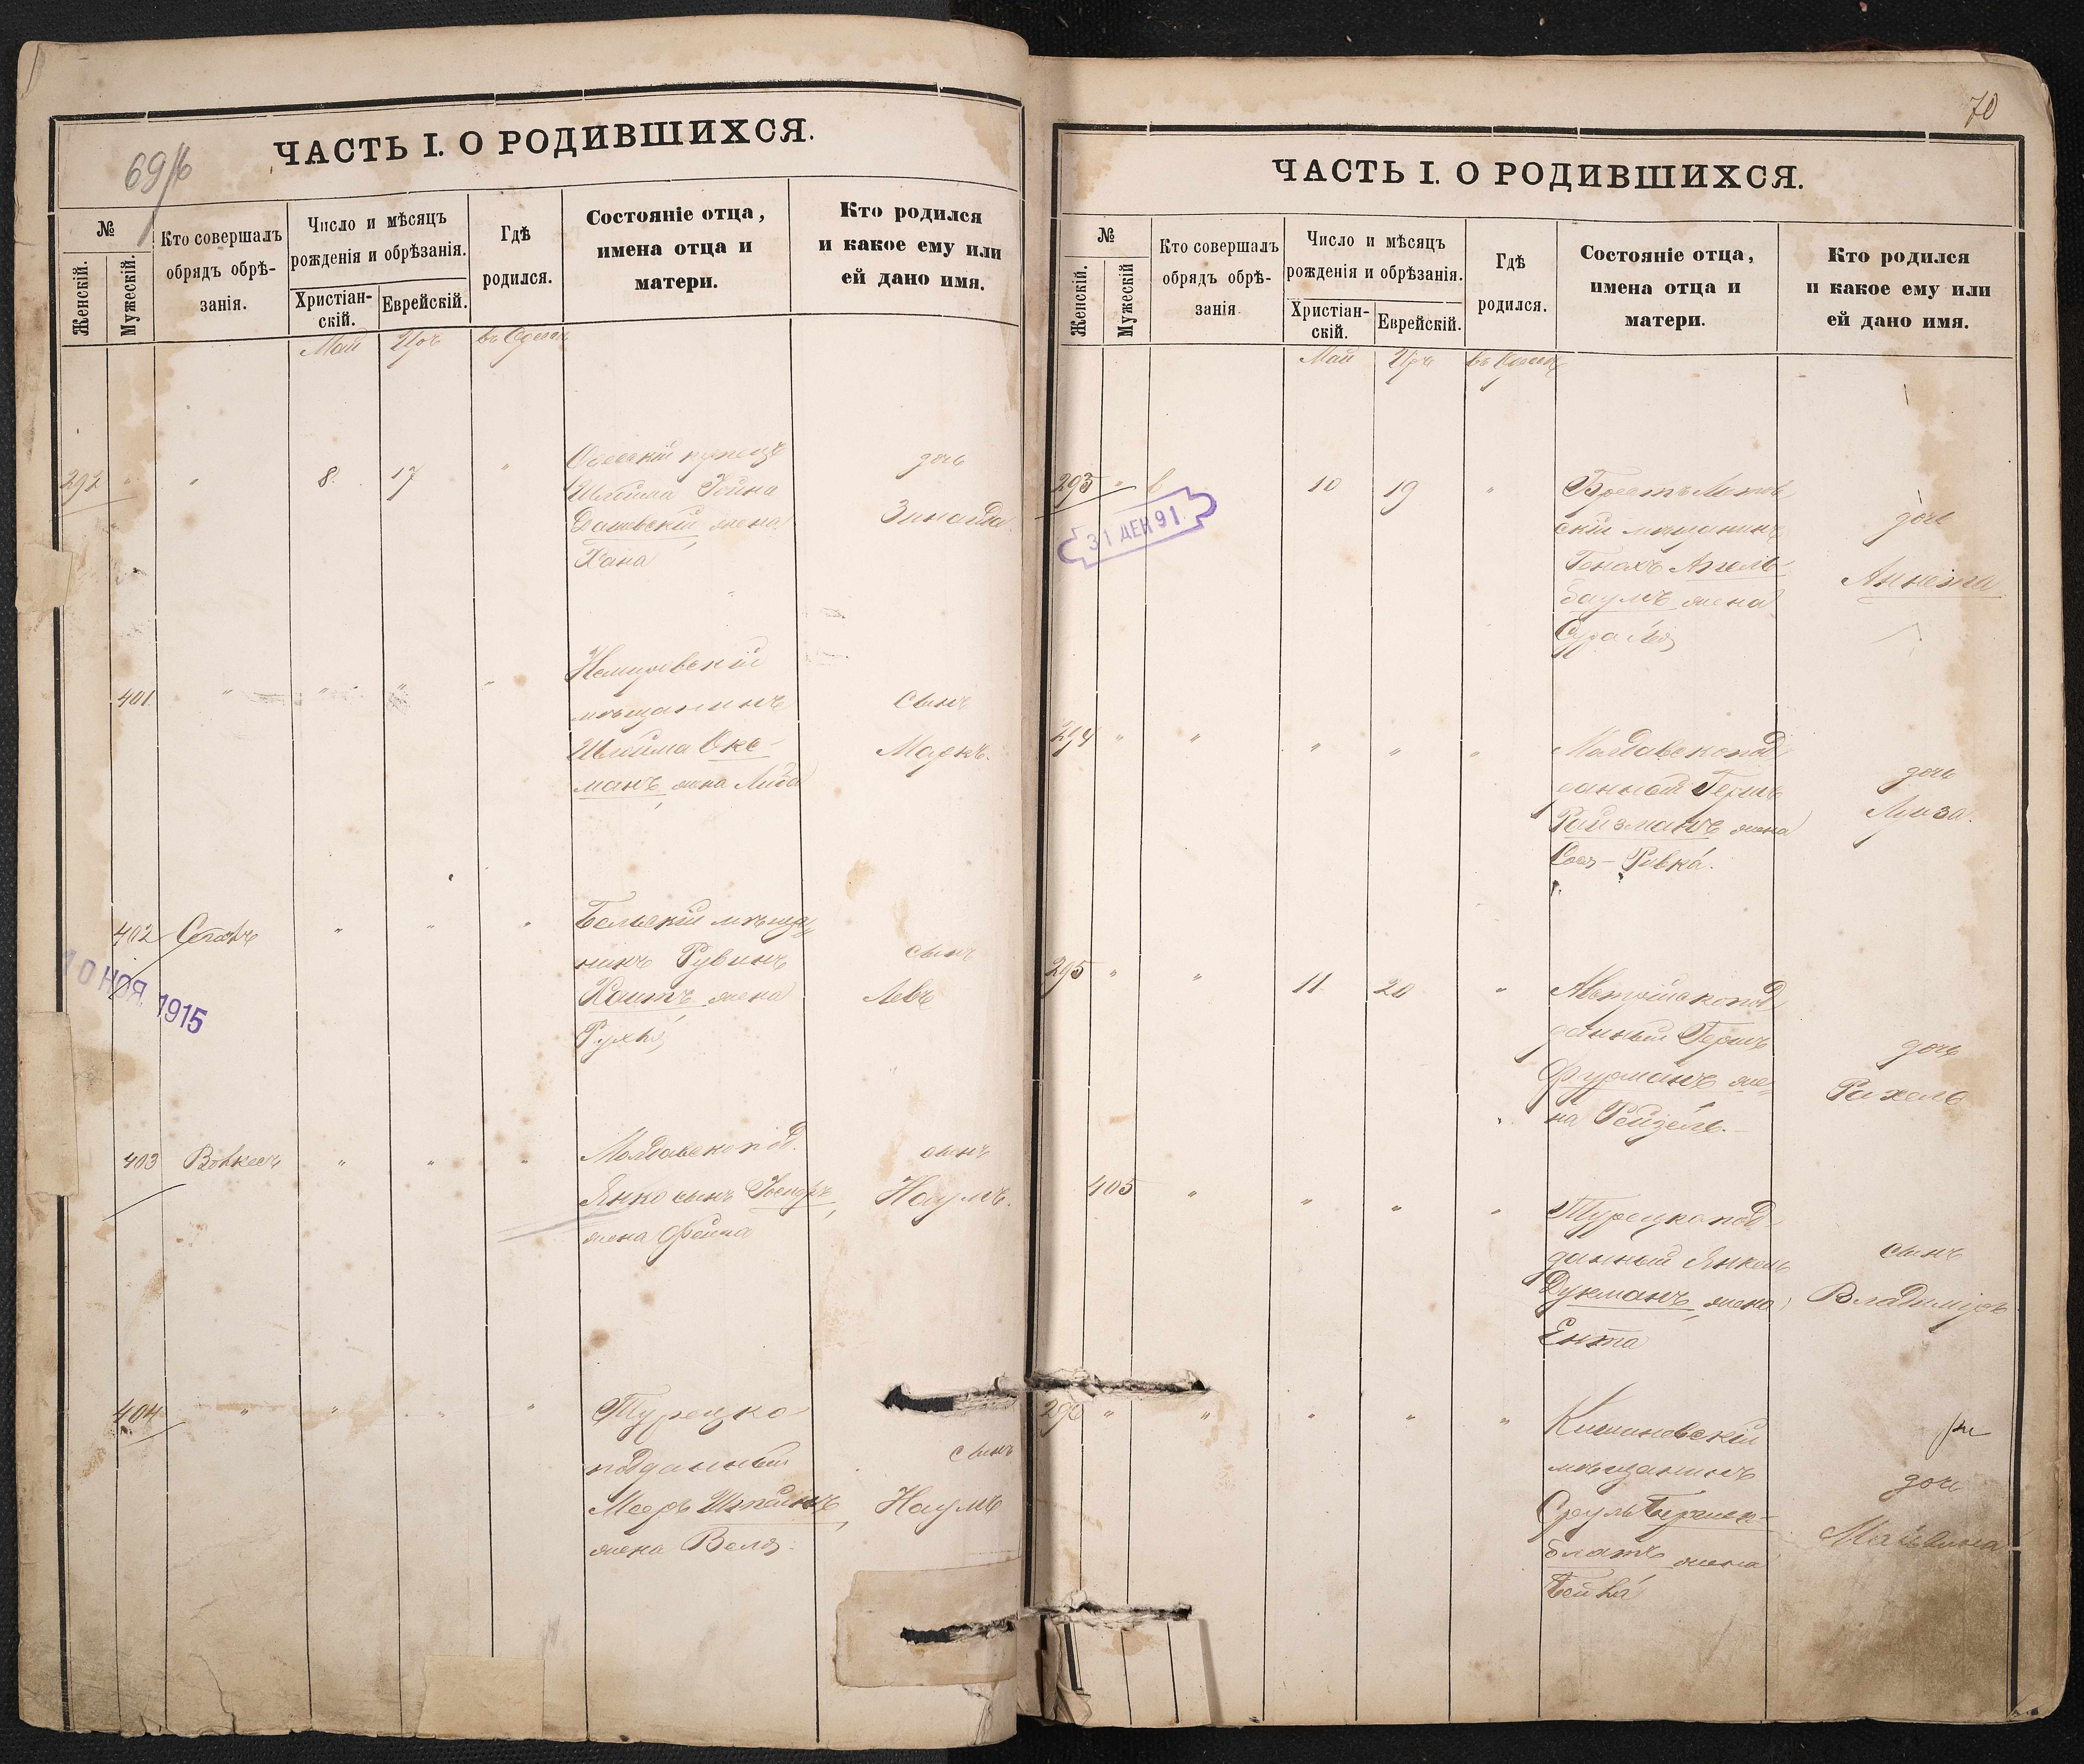 69/б
ЧАСТЬ I. О РОДИВШИХСЯ.
№
Женскій.
Мужескій.
Кто совершалъ
обрядъ обрѣ-
занія.
Число и мѣсяцъ
рожденія и обрѣзанія.
Христіан-
скій.
Еврейскій.
Гдѣ
родился.
Состояніе отца,
имена отца и
матери.
Кто родился
и какое ему или
ей дано имя.
Май
въ Одессѣ
292 " " 8. 17 "
Одесскій купецъ
Шлёйма Іойна
Дашевскій жена
Хана
дочь
Зинаида
401 " " " "
Немировскій
мѣщанинъ
Шлёйма Окс-
манъ жена Либа
сынъ
Маркъ.
402 " " "
Бельскій мѣща
нинъ Рувинъ
жена
сынъ
Левъ
10 НОЯ. 1915
403 " " "
Молдавскопод.
Янко сынъ
жена Фейга
сынъ
Наумъ.
404 " " " "
Турецко
подданный
Мееръ
жена Веля.
сынъ
Наумъ
70
ЧАСТЬ I. О РОДИВШИХСЯ.
№
Женскій.
Мужескій
Кто совершалъ
обрядъ обрѣ-
занія
Число и мѣсяцъ
рожденія и обрѣзанія.
Христіан-
скій.
Еврейскій.
Гдѣ
родился.
Состояніе отца,
имена отца и
матери.
Кто родился
и какое ему или
ей дано имя.
Май
293 " 10 19 "
Брестъ Литов
скій мѣщанинъ
Генахъ Апель-
баумъ жена
Сура
дочь
Аннета
31 ДЕК 91
294 " " " " "
Молдавскопод
данный Гершъ
Райзманъ жена
Сося-Ривка.
дочь
Луиза.
295 " " 11 20 "
Австрійскопод
данный Гершъ
Фурманъ же
на Рейзель.
дочь
Рахель
405 " " " "
Турецкопод-
данный Янкель
Дукманъ жена
Ента
сынъ
Владиміръ
296 " " " " "
Кишиневскій
мѣщанинъ
Сруль
блатъ жена
Бейла
дочь
Мальвина